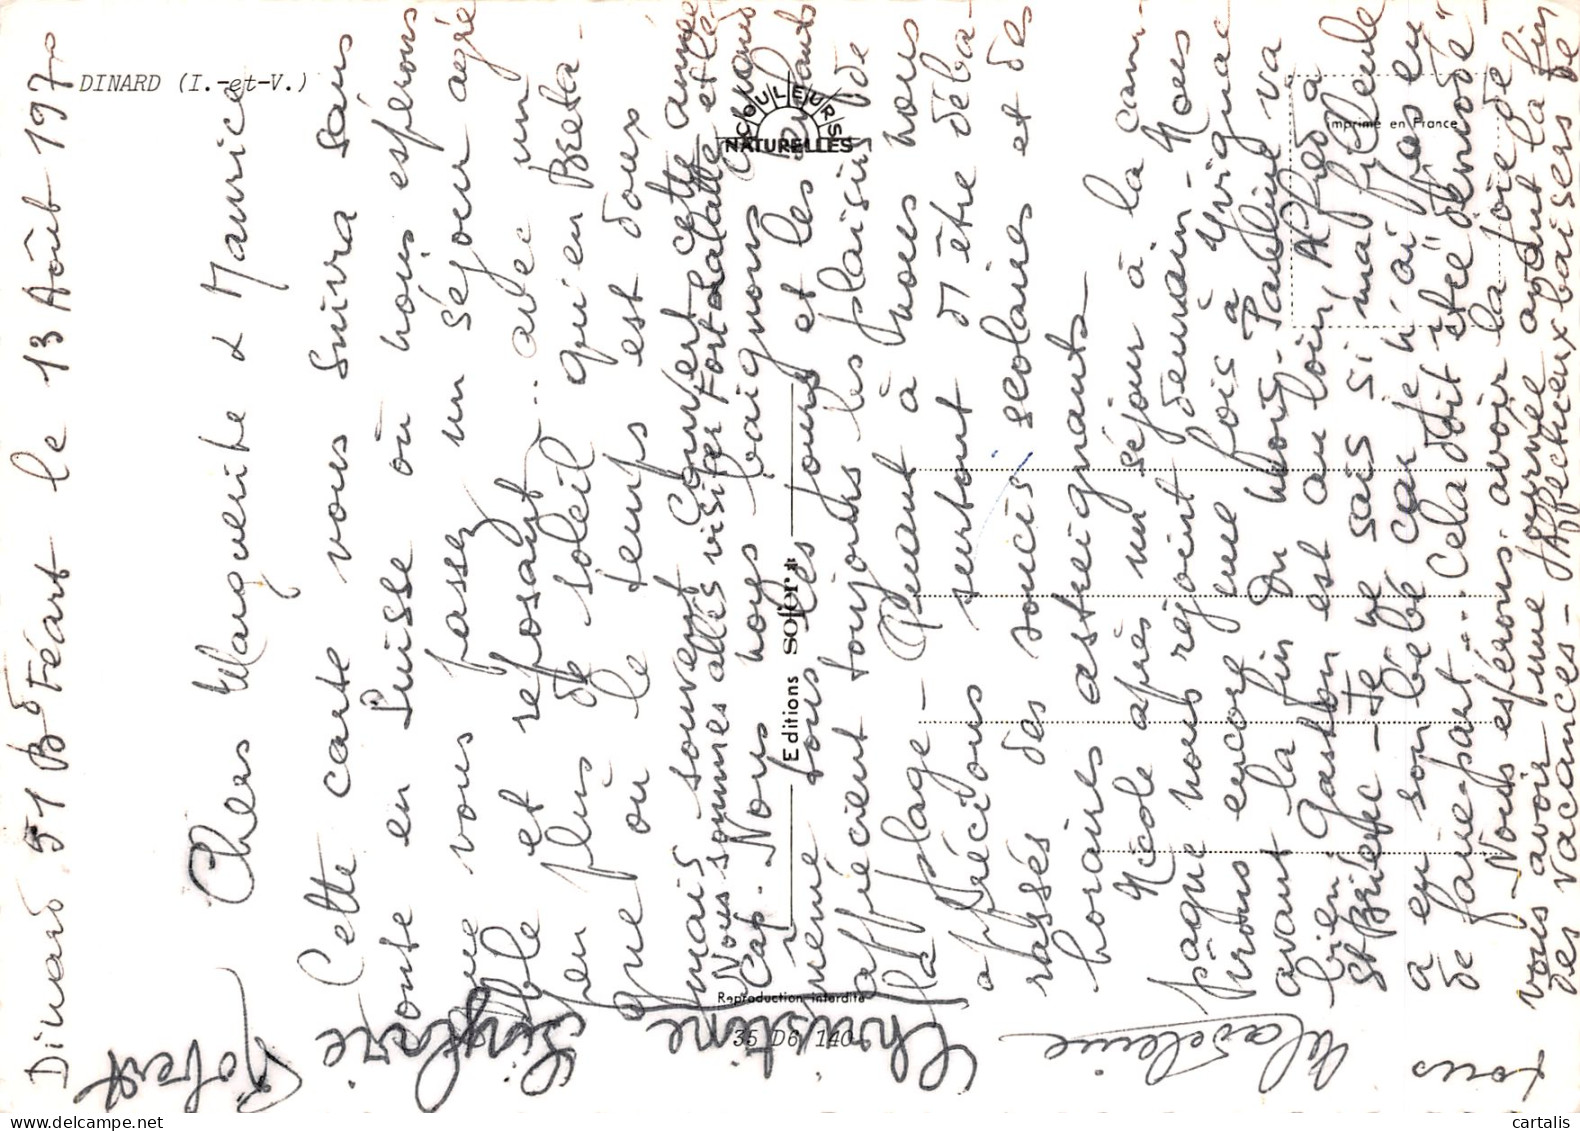 DINARD (I.-et-V.)
COULEURS
NATURELLES
Imprimé en France
Editions sofer*
Reproduction interdite
35 D6 140
Dinard 51 Bd Féart le 13 Août 197
Chers Marguerite & Maurice
Cette carte vous suivra sans
doute en Suisse où nous espérons
que vous passez un séjour agré
able et reposant... avec un
peu plus de soleil qu'en Breta-
gne où le temps est doux
mais souvent couvert cette année
Nous sommes allés visiter Fort Lalatte et le
Cap. Nous nous baignons quand
même tous les jours et les enfants
apprécient toujours les plaisirs de
la plage - Quant à nous nous
apprécions surtout d'être déba-
rassés des soucis scolaires et des
horaires astreignants -
Nicole après un séjour à la cam-
pagne nous rejoint demain - Nous
irons encore une fois à Yvignac
avant la fin du mois. Pauline va
bien, Gaston est au loin, Alfred à
St Brieuc - Je ne sais si ma filleule
a eu son bébé car je n'ai pas eu
de faire-part... Cela doit être "démodé"
- Nous espérons avoir la joie de
vous avoir une journée avant la fin
des vacances - Affectueux baisers de
tous
Madeleine
Christine
Robert